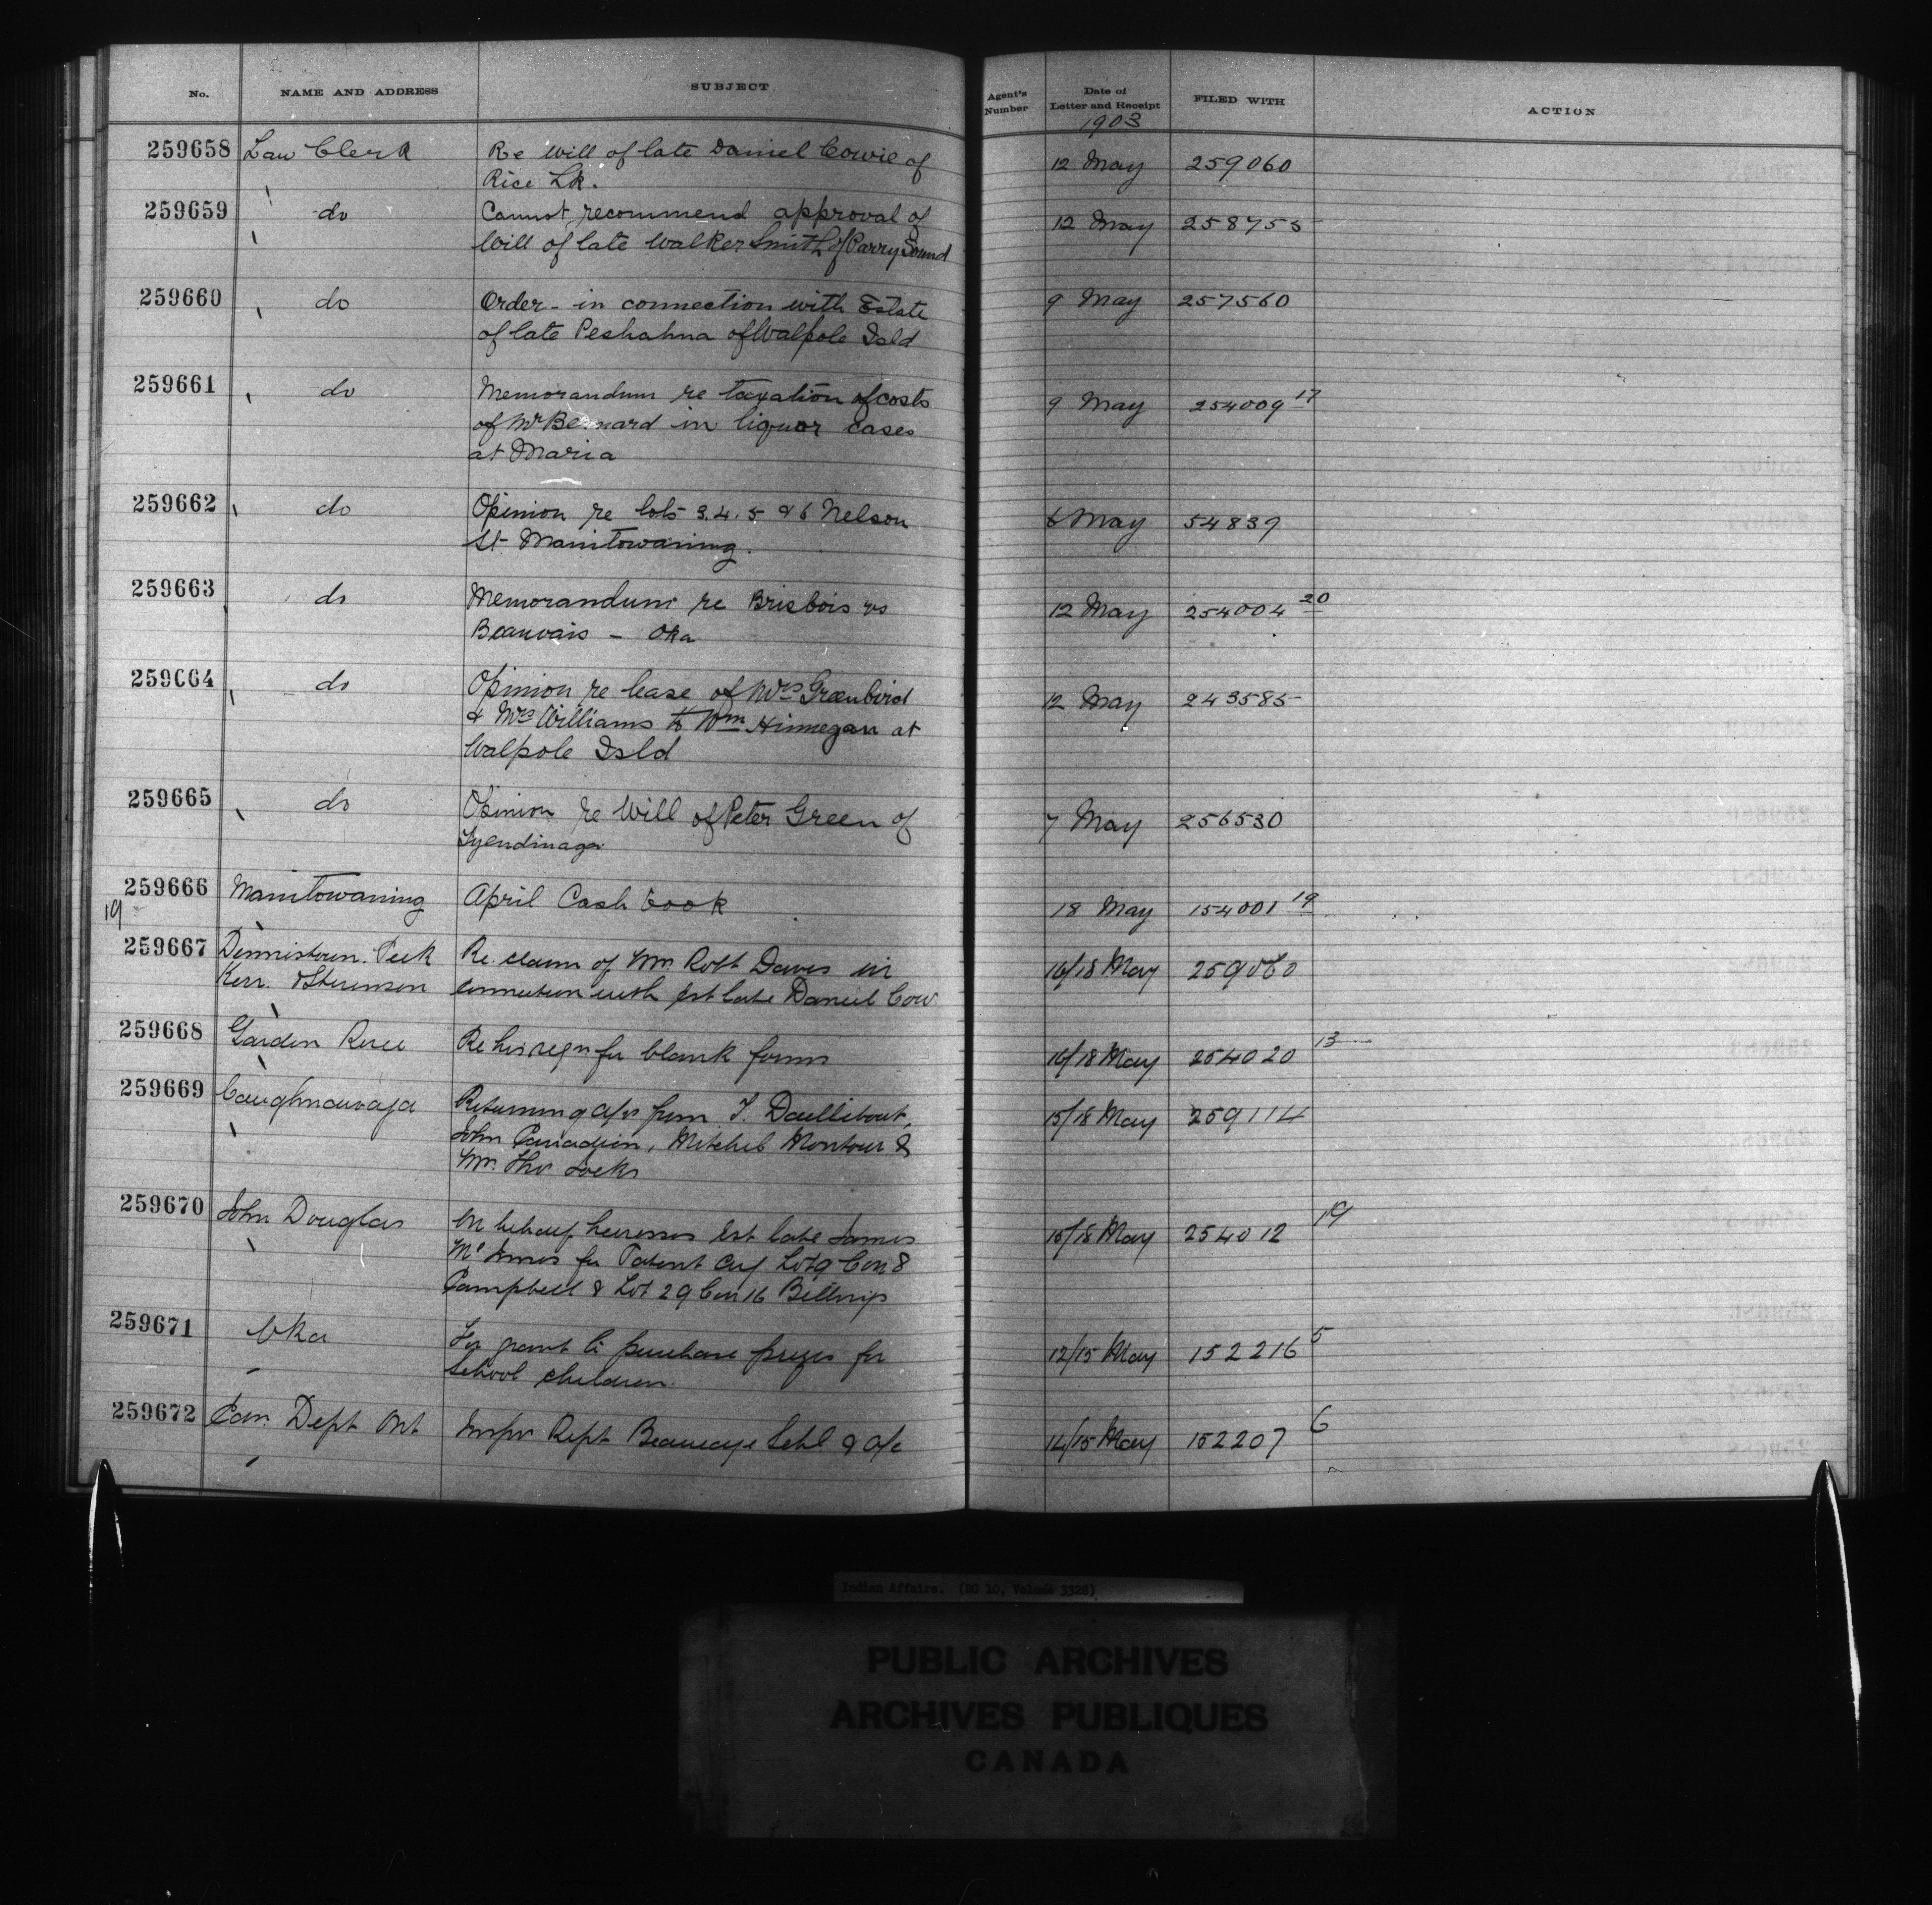 No. NAME AND ADDRESS SUBJECT Agent's Number Date of Letter and Receipt FILED WITH ACTION
1903
259658 Law Clerk Re will of late Daniel Cowie of 12 May 259060
Rice Lk.
259659 do Cannot recommend approval of 12 May 258755
Will of late Walker Smith of Parry Sound
259660 do Order - in connection with Estate 9 May 257560
of late Peshahna of Walpole Isld
259661 do Memorandum re taxation of costs 9 May 254009 17
of Mr Bernard in liquor cases
at Maria
259662 do Opinion re lots 3.4.5 & 6 Nelson 6 May 54839
St Manitowaning.
259663 do Memorandum re Brisbois vs 12 May 254004 20
Beauvais - Oka
259664 do Opinion re lease of Mrs Greenbird 12 May 243585
& Mrs Williams to Wm Hinnegan at
Walpole Isld
259665 do Opinion re Will of Peter Green of 7 May 256530
Tyendinaga
259666 Manitowaning April Cash book 18 May 154001 19
19
259667 Dennistoun. Peek Re. claim of Mrs. Robt Daves in 16/18 May 259060
Kerr. & Stevenson connection with Est late Daniel Cow
259668 Garden River Re his reqn for blank forms 16/18 May 254020 13
259669 Caughnawaga Returning a/cs from T. Daillebout, 15/18 May 259114
John Canadien, Mitchel Montour &
Mrs. Thos Locks
259670 John Douglas On behalf heiresses Est late James 15/18 May 254012 19
Mc Innes for Patent Lot 9 Con 8
Campbell & Lot 29 Con 16 Billings
259671 Oka For grant to purchase prizes for 12/15 May 152216 5
School children.
259672 Edn. Dept Ont Inspr Rept Beaucage Schl & a/c 14/15 May 152207 6
Indian Affairs. (RG 10, Volume 3328)
PUBLIC ARCHIVES
ARCHIVES PUBLIQUES
CANADA